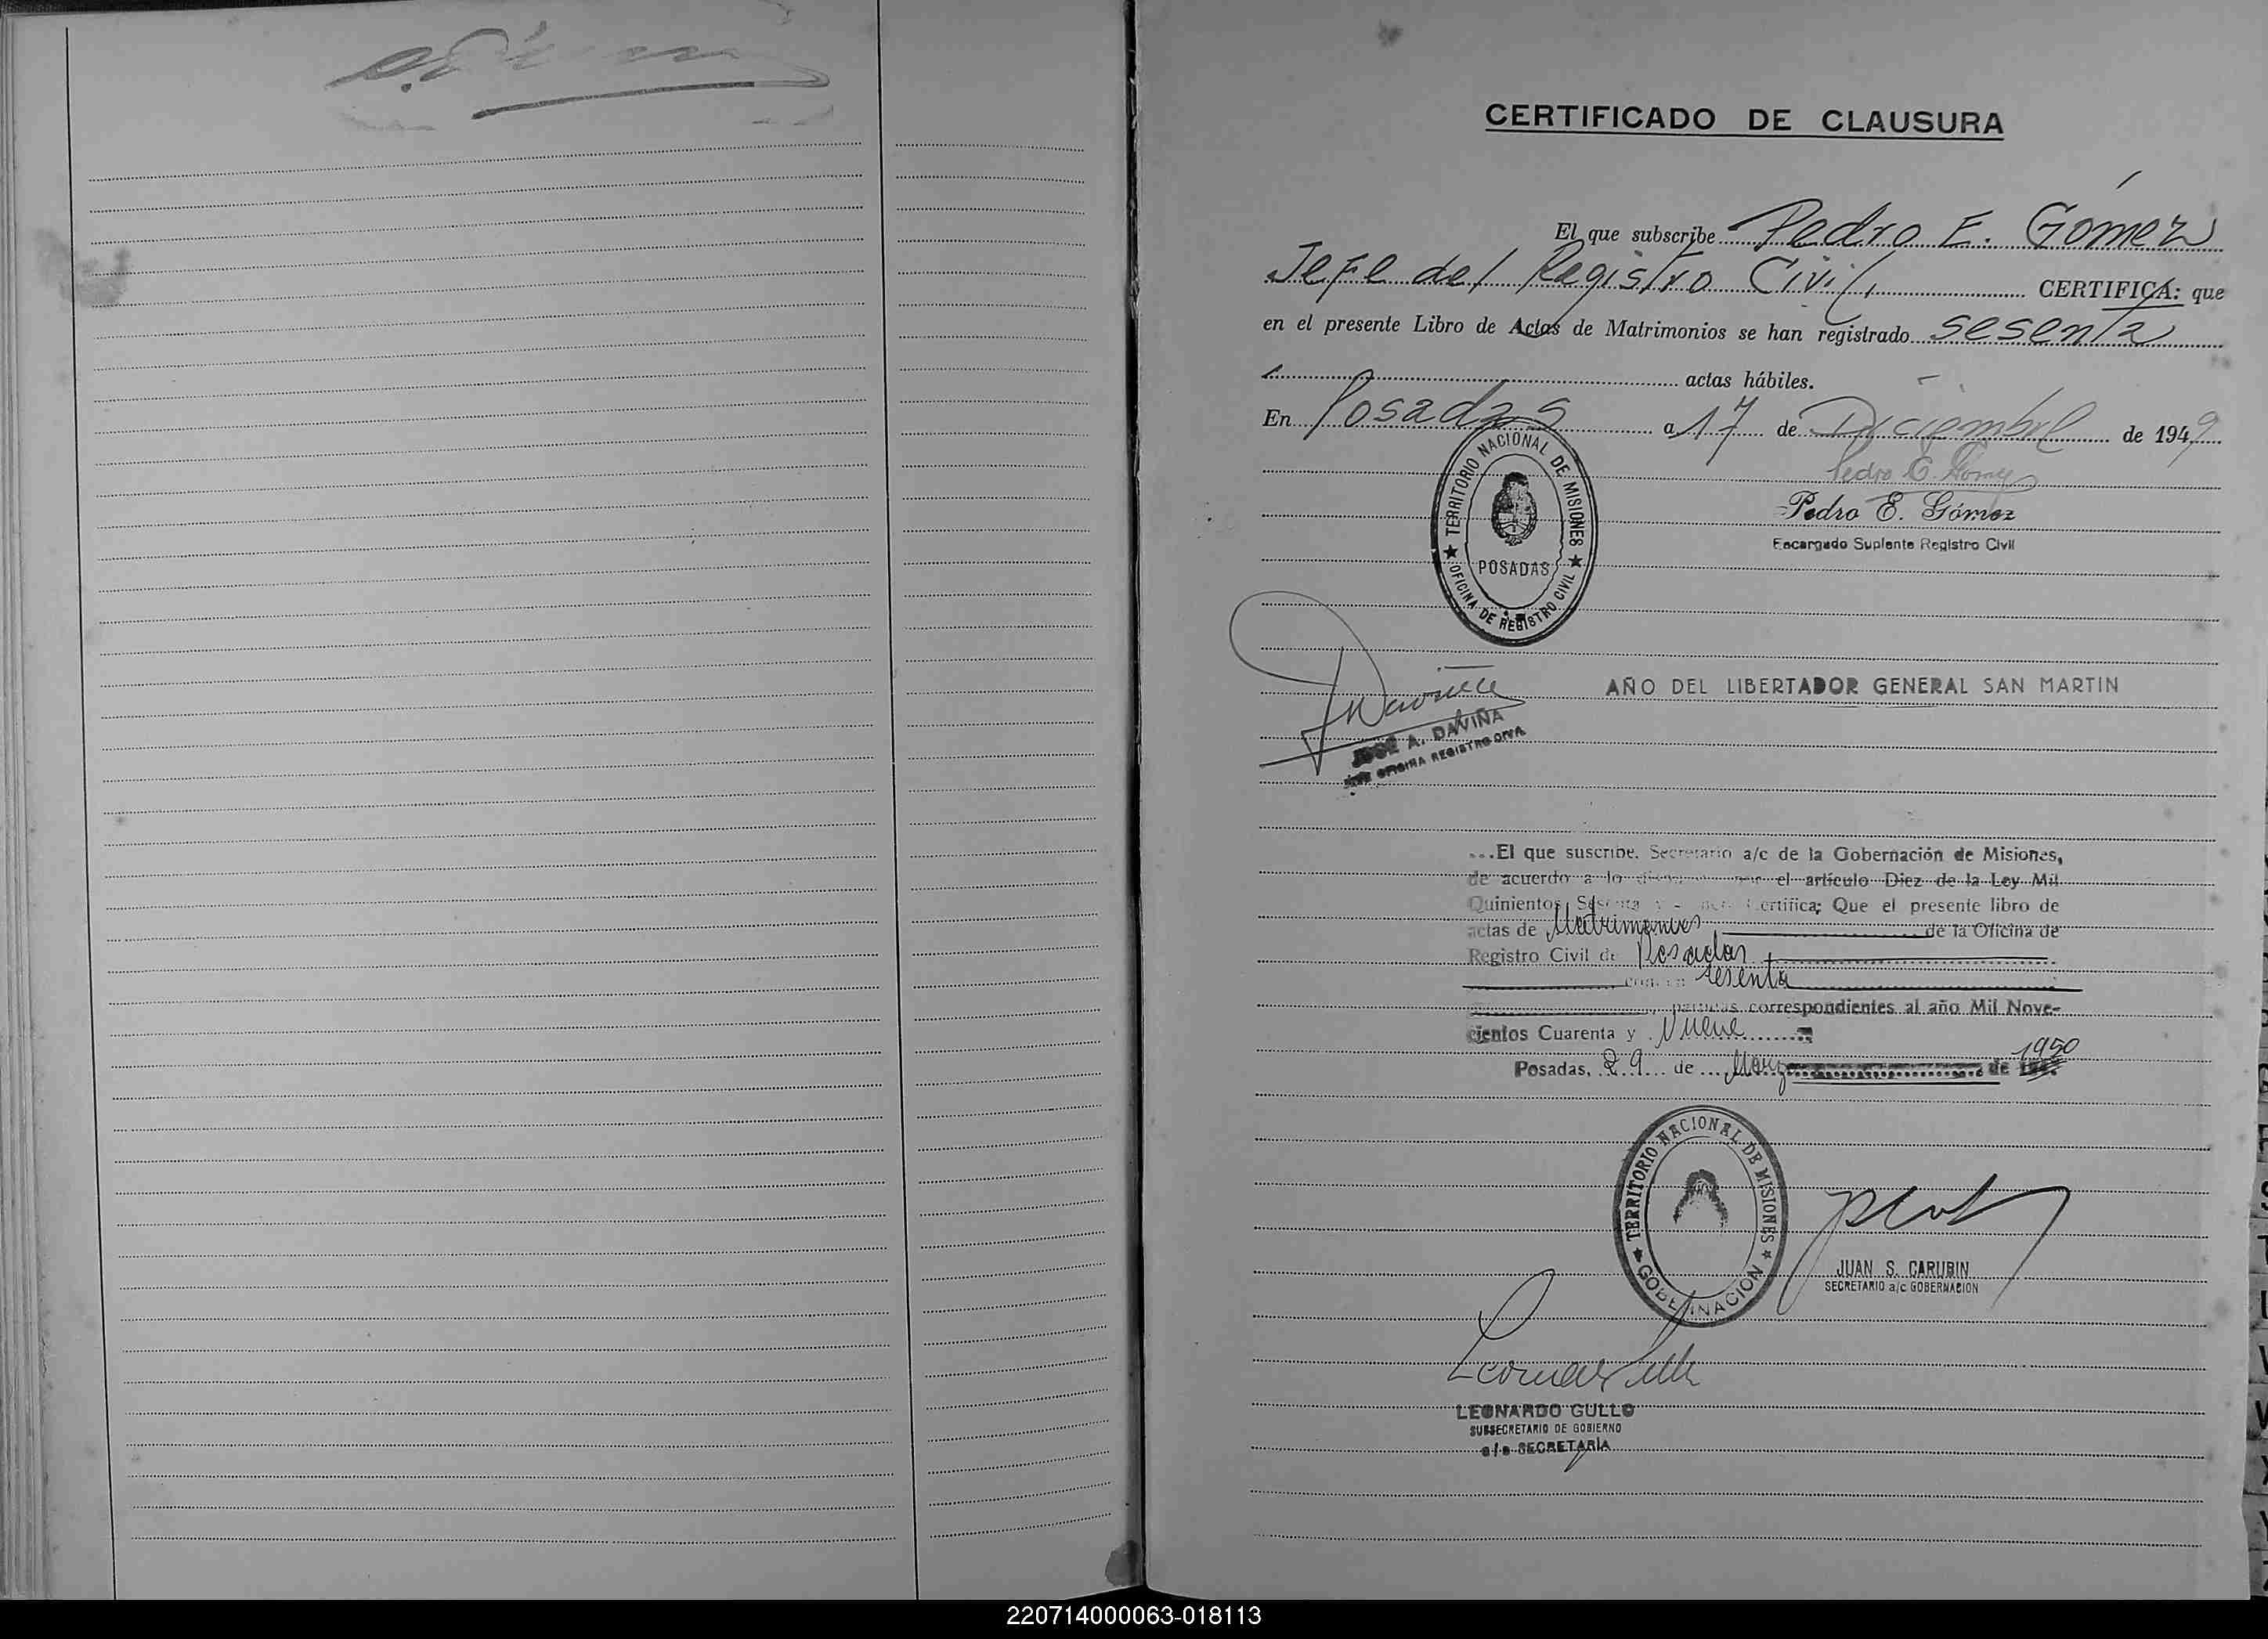 CERTIFICADO DE CLAUSURA
El que subscribe Pedro E. Gómez
Jefe del Registro Civil, CERTIFICA: que
en el presente Libro de Actas de Matrimonios se han registrado sesenta
actas hábiles.
En Posadas a 17 de Diciembre de 1949
Pedro E. Gómez
Pedro E. Gómez
Encargado Suplente Registro Civil
TERRITORIO NACIONAL DE MISIONES
POSADAS
OFICINA DE REGISTRO CIVIL
AÑO DEL LIBERTADOR GENERAL SAN MARTIN
JOSÉ A. DAVIÑA
JEFE OFICINA REGISTRO CIVIL
...El que suscribe, Secretario a/c de la Gobernación de Misiones,
de acuerdo a lo el artículo Diez de la Ley Mil
Quinientos Sesenta y Certifica; Que el presente libro de
actas de Matrimonios de la Oficina de
Registro Civil de Posadas
sesenta
partidas correspondientes al año Mil Nove-
cientos Cuarenta y Nueve
1950
Posadas, 29 de Marzo de
TERRITORIO NACIONAL DE MISIONES
GOBERNACION
JUAN S. CARUBIN
SECRETARIO a/c GOBERNACION
LEONARDO GULLO
SUBSECRETARIO DE GOBIERNO
a/c SECRETARÍA
220714000063-018113